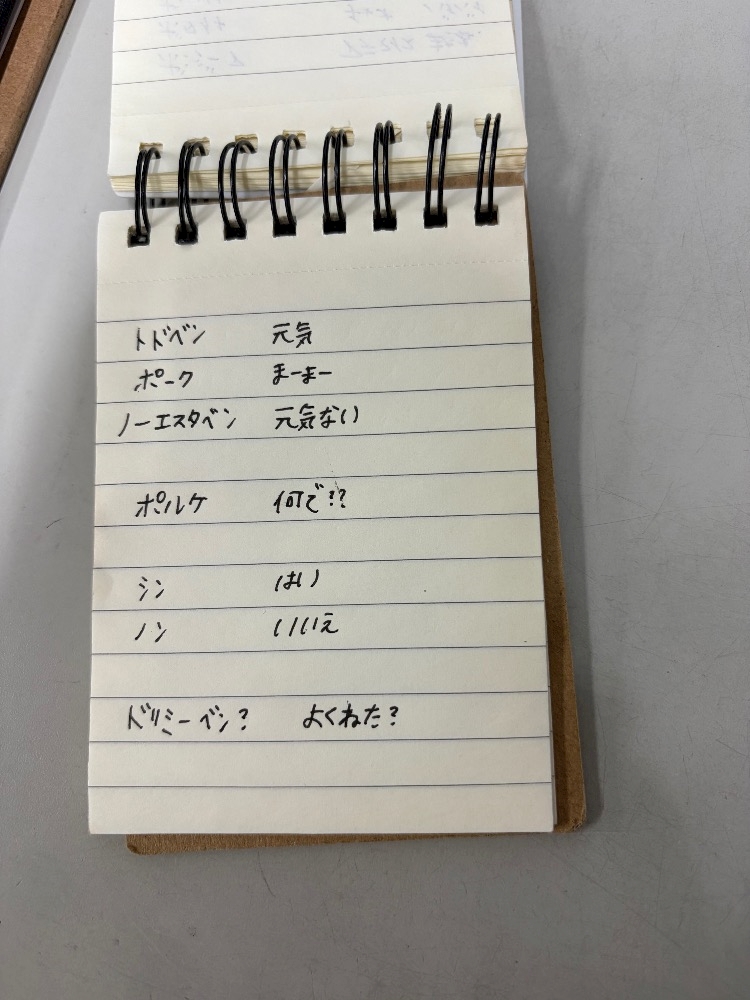 トドベン 元気
ポーク まーまー
ノーエスタベン 元気ない
ポルケ 何で??
シン はい
ノン いいえ
ドリミーベン? よくねた?